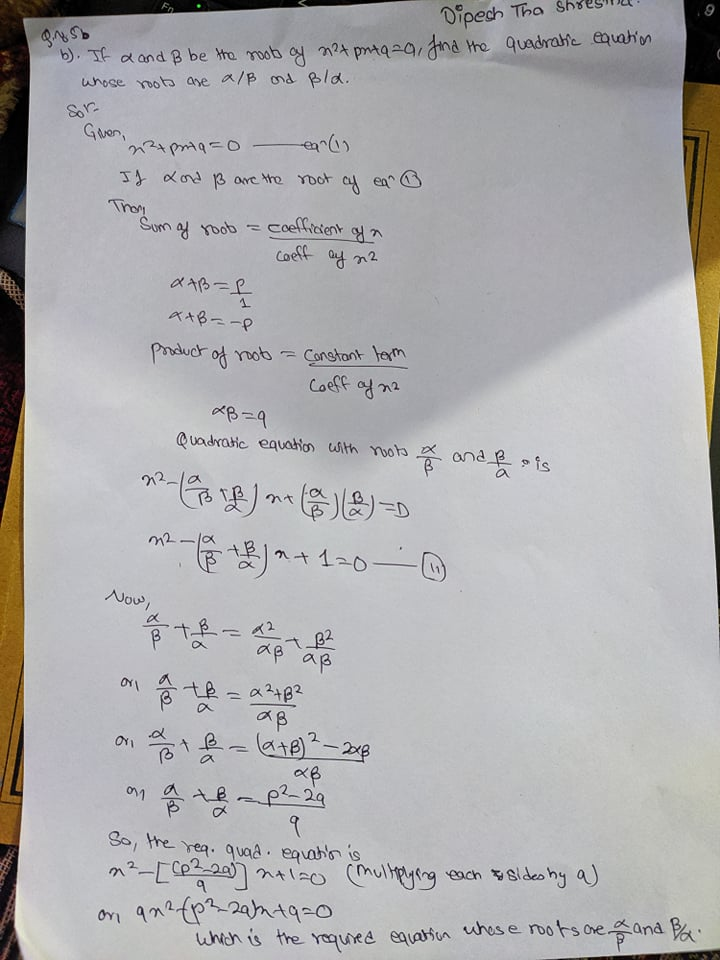 Dipesh Tha Shrestha
Q.N.5b
b). If α and β be the roots of x²+px+q=0, find the quadratic equation
whose roots are α/β and β/α.
Solⁿ
Given,
x²+px+q=0 — eqⁿ(1)
If α and β are the root of eqⁿ ①
Then,
Sum of roots = coefficient of x / coeff of x²
α+β = p/1
α+β = -p
product of roots = constant term / Coeff of x²
αβ = q
Quadratic equation with roots α/β and β/α is
x² - (α/β + β/α) x + (α/β)(β/α) = 0
x² - (α/β + β/α) x + 1 = 0 — (11)
Now,
α/β + β/α = α²/αβ + β²/αβ
or, α/β + β/α = α²+β² / αβ
or, α/β + β/α = (α+β)² - 2αβ / αβ
or, α/β + β/α = p²-2q / q
So, the req. quad. equation is
x² - [(p²-2q)/q] x+1=0 (Multiplying each sides by q)
or, qx²-(p²-2q)x+q=0
which is the required equation whose roots are α/β and β/α.